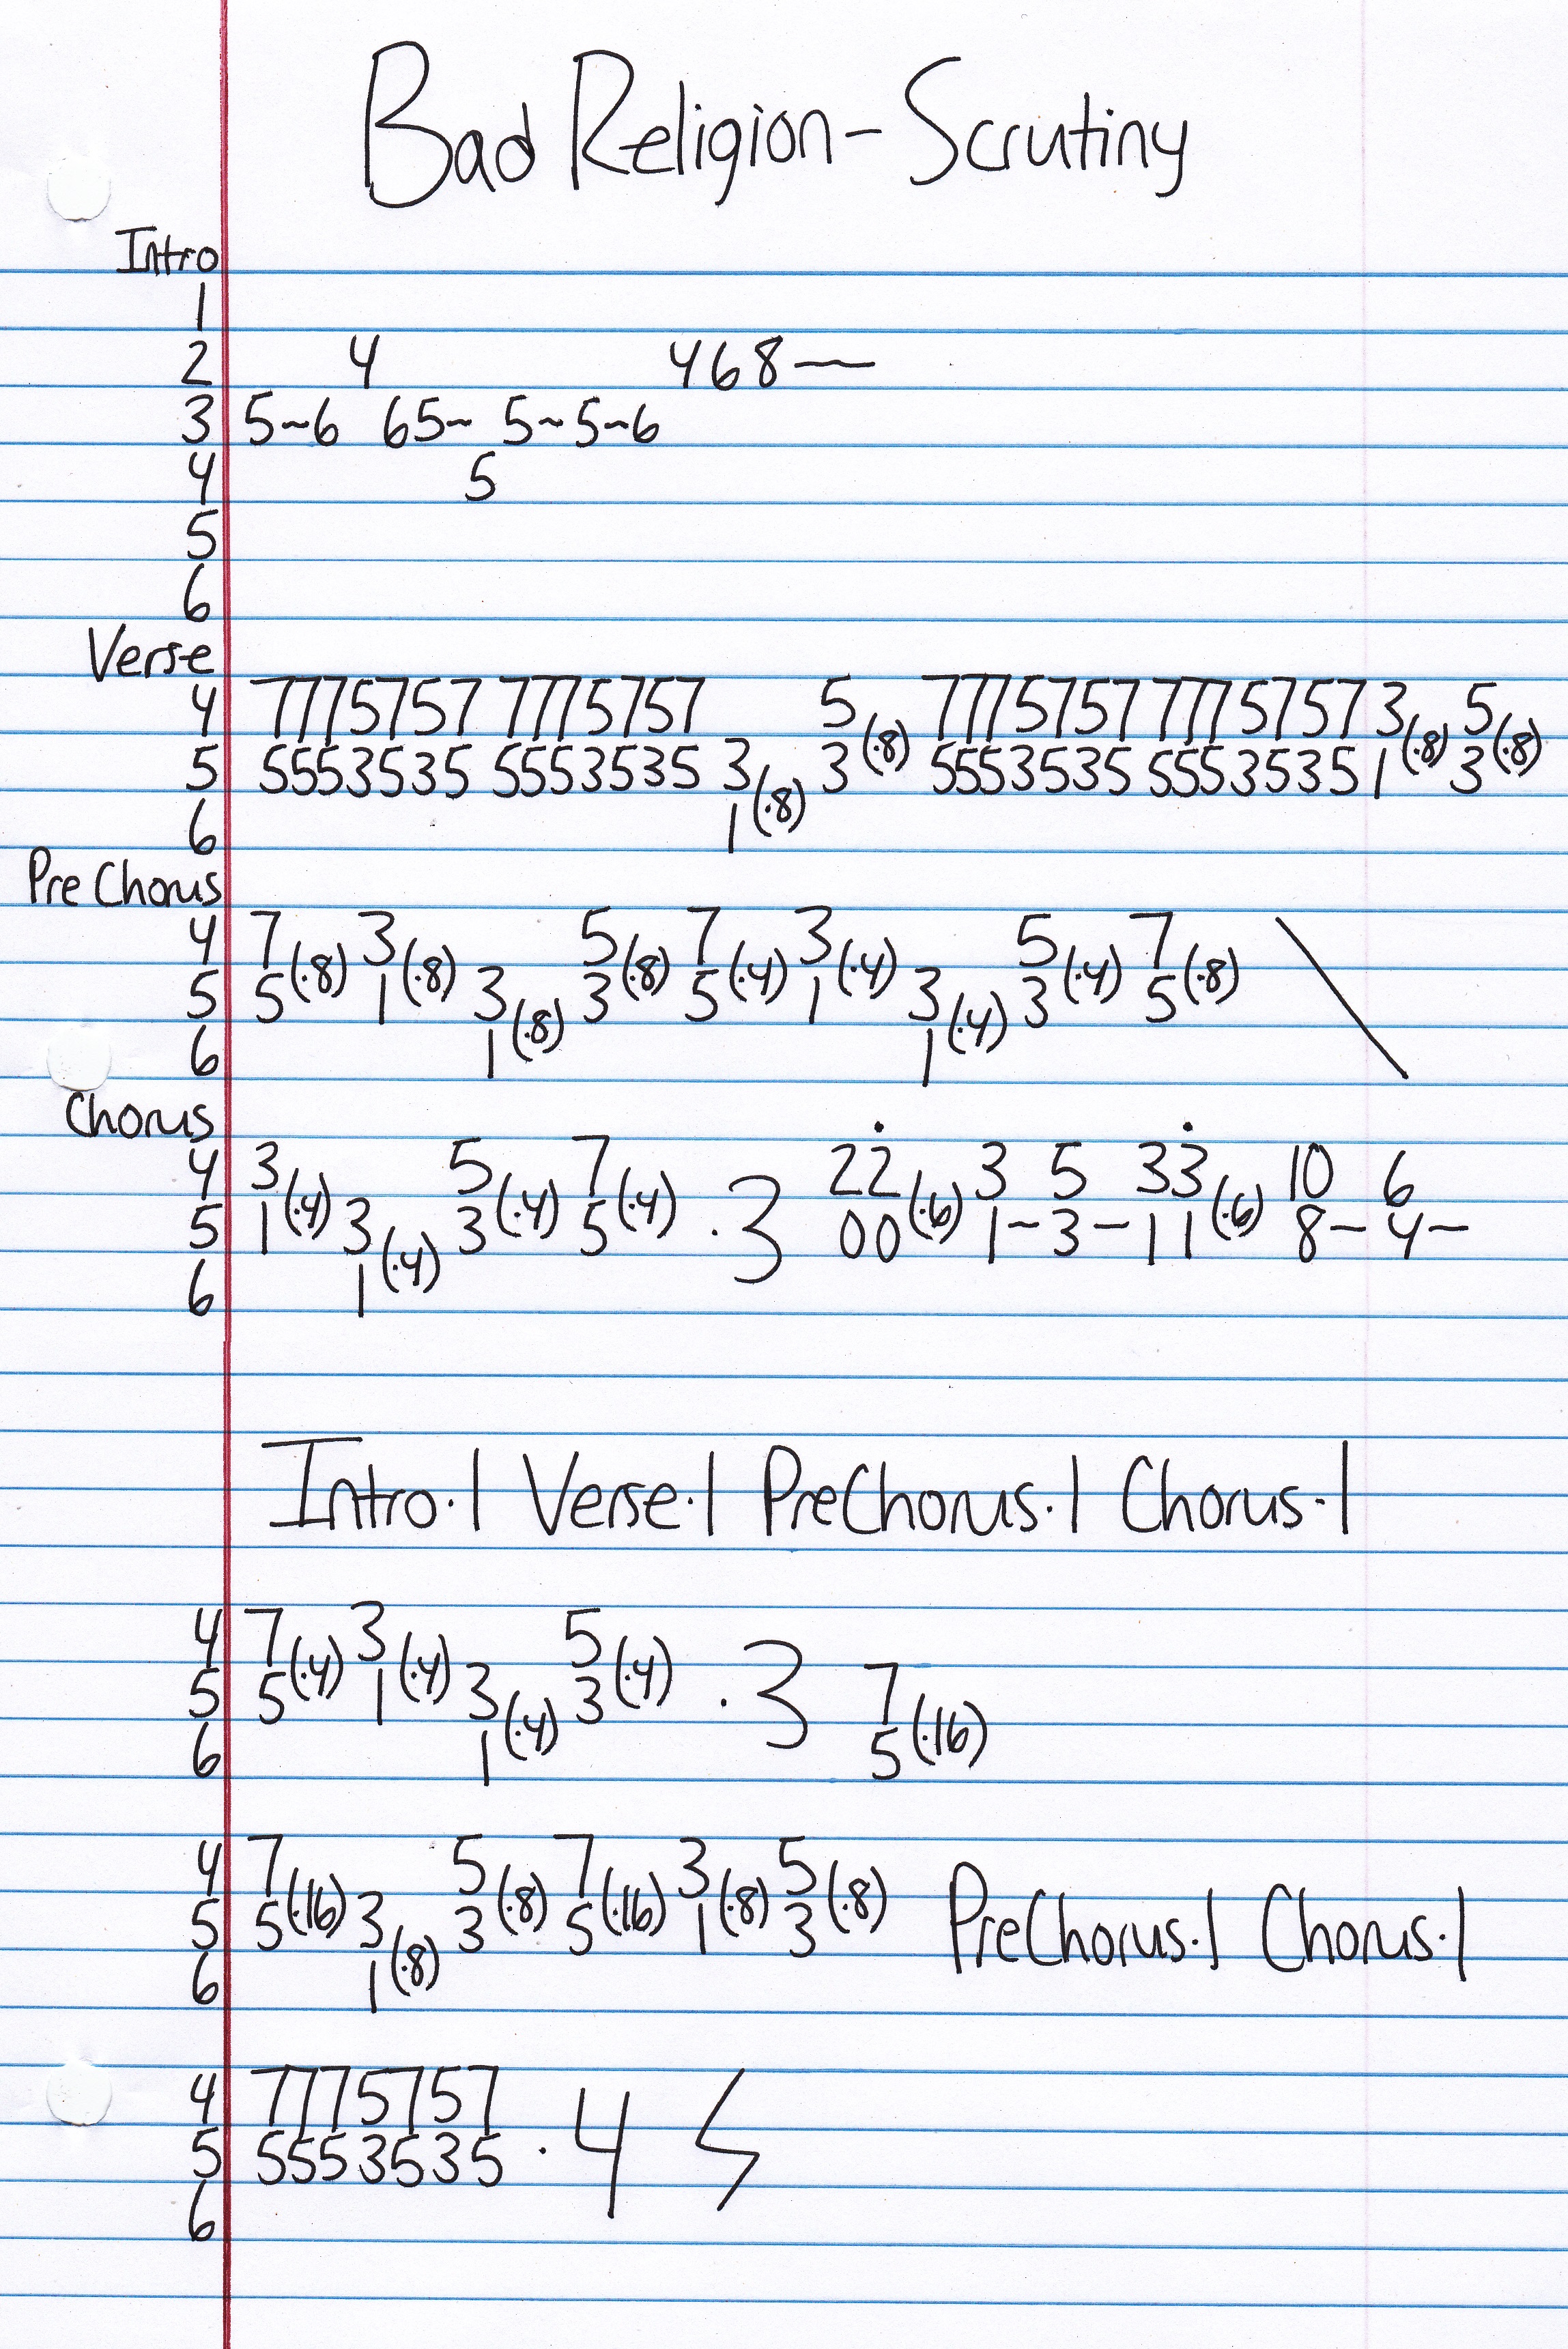 Bad Religion - Scrutiny
Intro
1
2 4 468—
3 5~6 65~ 5~5~6
4 5
5
6
Verse
4 7775757 7775757 5 7775757 7775757 3 5
5 5553535 5553535 3 3 (·8) 5553535 5553535 1 (·8) 3 (·8)
6 1 (·8)
PreChorus
4 7 3 5 7 3 5 7 \
5 5 (·8) 1 (·8) 3 3 (·8) 5 (·4) 1 (·4) 3 3 (·4) 5 (·8)
6 1 (·8) 1 (·4)
Chorus
4 3 5 7 22̇ 3 5 33̇ 10 6
5 1 (·4) 3 3 (·4) 5 (·4) ·3 00 (·6) 1~ 3- 11 (·6) 8- 4-
6 1 (·4)
Intro·1 Verse·1 PreChorus·1 Chorus·1
4 7 3 5
5 5 (·4) 1 (·4) 3 3 (·4) ·3 7
6 1 (·4) 5 (·16)
4 7 5 7 3 5
5 5 (·16) 3 3 (·8) 5 (·16) 1 (·8) 3 (·8) PreChorus·1 Chorus·1
6 1 (·8)
4 7775757
5 5553535 ·4
6